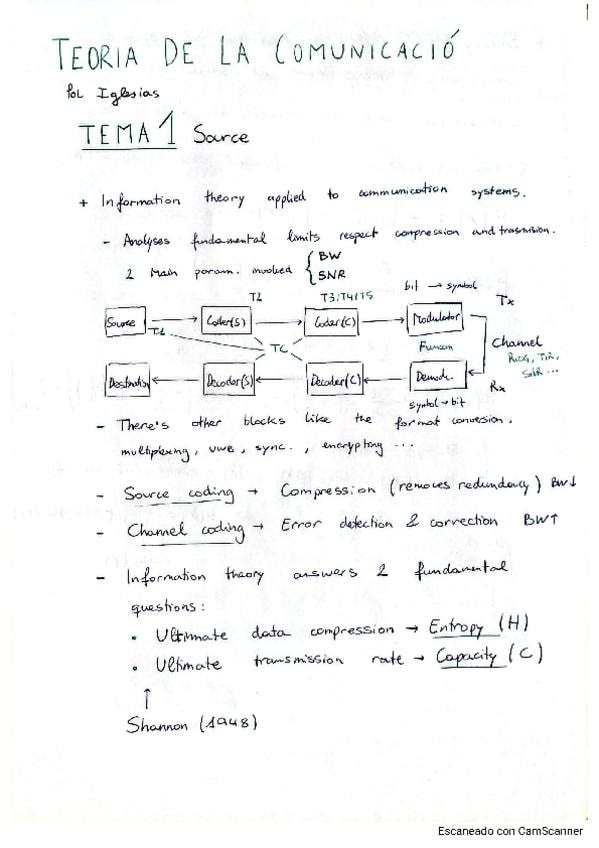 TEORIA DE LA COMUNICACIÓ
Pol Iglesias
TEMA 1 Source
+ Information theory applied to communication systems.
- Analyses fundamental limits respect compression and trasmision.
2 Main param. involved { BW
SNR
T2 T3/T4/T5 bit → symbol Tx
Source → Coder(S) → Coder(C) → Modulator
T1 TC Channel
Destination ← Decoder(S) ← Decoder(C) ← Demod. Rx
symbol → bit
- There's other blocks like the format conversion,
multiplexing, sync., encrypting ...
- Source coding → Compression (removes redundancy) BW↓
- Channel coding → Error detection & correction BW↑
- Information theory answers 2 fundamental
questions:
• Ultimate data compression → Entropy (H)
• Ultimate transmission rate → Capacity (C)
↑
Shannon (1948)
Escaneado con CamScanner